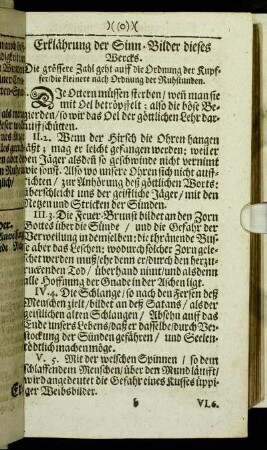 )(o)(
Erklährung der Sinn-Bilder dieses
Wercks.
Die grössere Zahl geht auff die Ordnung der Kupf-
fer/die kleinere nach Ordnung der Ruhstunden.
Die Ottern müssen sterben/ wen̄ man sie
mit Oel betröpffelt; also die böse Be-
gierden/ so wir das Oel der göttlichen Lehr dar-
auff schütten.
II. 2. Wenn der Hirsch die Ohren hangen
läßt; mag er leicht gefangen werden; weil er
den Jäger alsden̄ so geschwinde nicht vernimt
wie sonst. Also wo unsere Ohren sich nicht auff-
richten/ zur Anhörung deß göttlichen Worts:
überschleicht uns der geistliche Jäger/ mit den
Netzen und Stricken der Sünden.
III. 3. Die Feuer-Brunst bildet an den Zorn
Gottes über die Sünde / und die Gefahr der
Verweilung in denselben: die thränende Bus-
se aber das Leschen; wodurch solcher Zorn gele-
schet werden muß/ehe denn er/durch den herzu-
ruckenden Tod / überhand nimt/ und alsdenn
alle Hoffnung der Gnade in der Aschen ligt.
IV. 4. Die Schlange/ so nach den Fersen deß
Menschen zielt/bildet an deß Satans/ als der
geistlichen alten Schlangen/ Absehn auf das
Ende unsers Lebens/daß er dasselbe/durch Ver-
stockung der Sünden gefähren/ und Seelen-
tödtlich machen möge.
V. 5. Mit der welschen Spinnen / so dem
schlaffendem Menschen/ über den Mund läufft/
wird angedeutet die Gefahr eines Kusses üppi-
ger Weibsbilder.
b VI. 6.